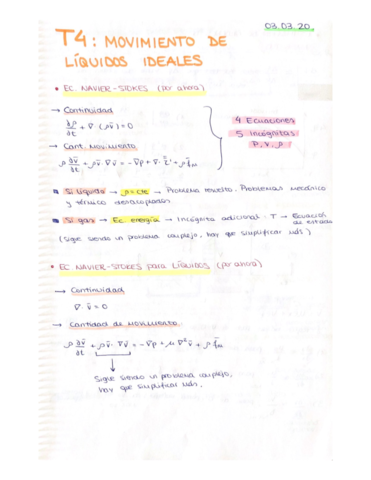 03.03.20.
T4: MOVIMIENTO DE
LÍQUIDOS IDEALES
• EC. NAVIER-STOKES (por ahora)
→ Continuidad
∂ρ/∂t + ∇·(ρv̄) = 0
→ Cant. Movimiento
ρ ∂v̄/∂t + ρv̄·∇v̄ = -∇p + ∇·τ̄' + ρ f̄m
4 Ecuaciones
5 Incógnitas
P, v, ρ
Si líquido → ρ = cte → Problema resuelto. Problemas mecánico
y térmico desacoplados
Si gas → Ec. energía → Incógnita adicional · T → Ecuación
de estado
(Sigue siendo un problema complejo, hay que simplificar más)
• EC NAVIER-STOKES para LÍQUIDOS (por ahora)
→ Continuidad
∇·v̄ = 0
→ Cantidad de Movimiento
ρ ∂v̄/∂t + ρv̄·∇v̄ = -∇p + μ∇²v̄ + ρ f̄m
Sigue siendo un problema complejo,
hay que simplificar más.